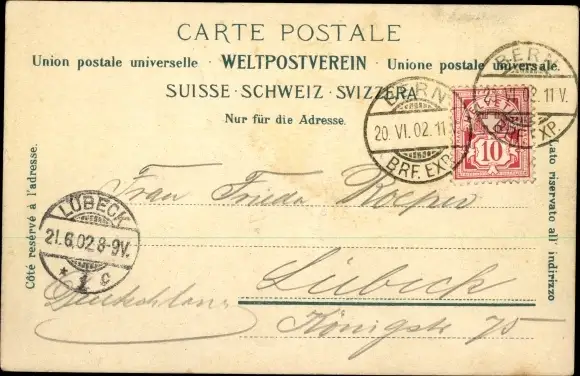 CARTE POSTALE
Union postale universelle · WELTPOSTVEREIN · Unione postale universale.
SUISSE · SCHWEIZ · SVIZZERA
Nur für die Adresse.
Côté reservé à l'adresse.
Lato riservato all' indirizzo
BERN
20. VI. 02. 11
BRF. EXP.
BERN
20. VI. 02. 11 V.
BRF. EXP.
HELVETIA
10
LÜBECK
21.6.02. 8-9V.
* 1 c
Frau Frieda Roeper
Lübeck
Deutschland
Königstr 75